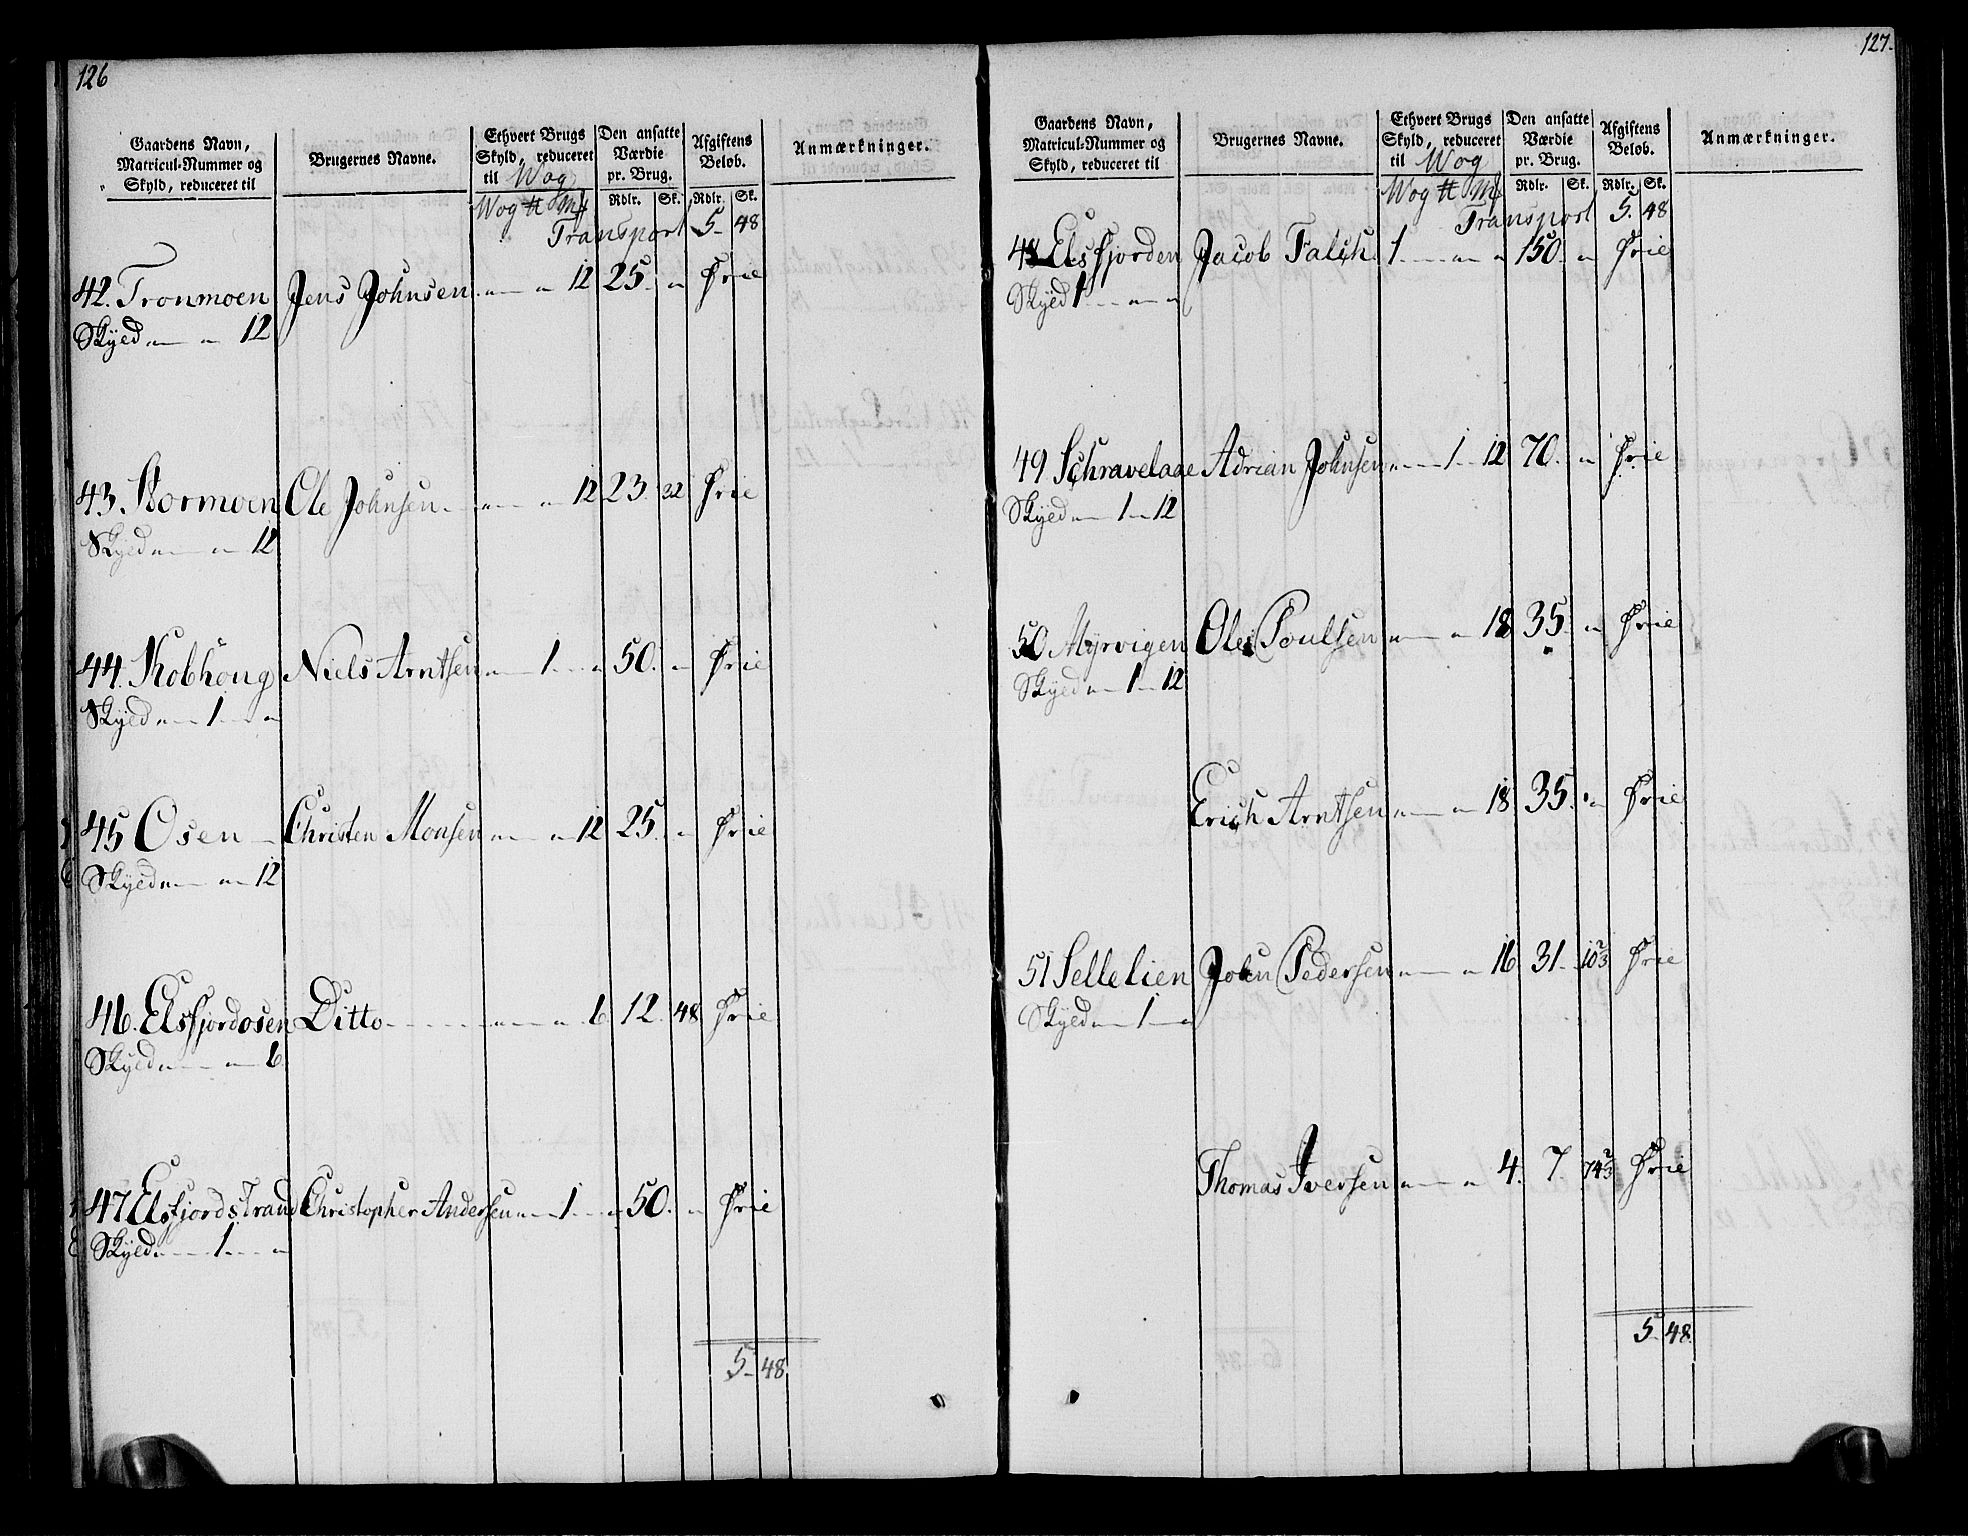 126
Gaardens Navn, Matricul-Nummer og Skyld, reduceret til
Brugernes Navne.
Ethvert Brugs Skyld, reduceret til Wog
Den ansatte Værdie pr. Brug.
Afgiftens Beløb.
Anmærkninger.
Wog ℔ Mk Rdlr. Sk. Rdlr. Sk.
Transport 5 - 48
42. Tronmoen Jens Johnsen 12 25. Frie
Skyld 12
43. Stormoen Ole Johnsen 12 23. 32 Frie
Skyld 12
44. Kobhoug Niels Arntsen 1 50. Frie
Skyld 1
45 Osen Christen Monsen 12 25. Frie
Skyld 12
46. Elsfjordosen Ditto 6 12. 48 Frie
Skyld 6
47 Elsfjordstrand Christopher Andersen 1 50. Frie
Skyld 1
5 - 48
127.
Gaardens Navn, Matricul-Nummer og Skyld, reduceret til
Brugernes Navne.
Ethvert Brugs Skyld, reduceret til Wog
Den ansatte Værdie pr. Brug.
Afgiftens Beløb.
Anmærkninger.
Wog ℔ Mk Rdlr. Sk. Rdlr. Sk.
Transport 5. 48
48 Elsfjorden Jacob Falch 1 150. Frie
Skyld 1
49 Schravelaae Adrian Johnsen 1 12 70. Frie
Skyld 1 12
50 Myrvigen Ole Poulsen 18 35. Frie
Skyld 1 12
Erich Arntsen 18 35. Frie
51 Sellelien John Pedersen 16 31. 10 2/3 Frie
Skyld 1
Thomas Iversen 4. 7 74 2/3 Frie
5 - 48